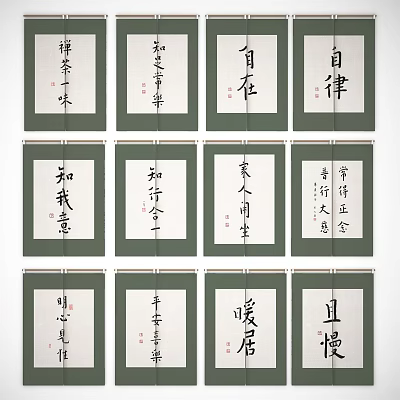 禪茶一味
知足常樂
自在
自律
知我意
知行合一
家人閑坐
常得正念
普行大慈
明心見性
平安喜樂
暖居
且慢